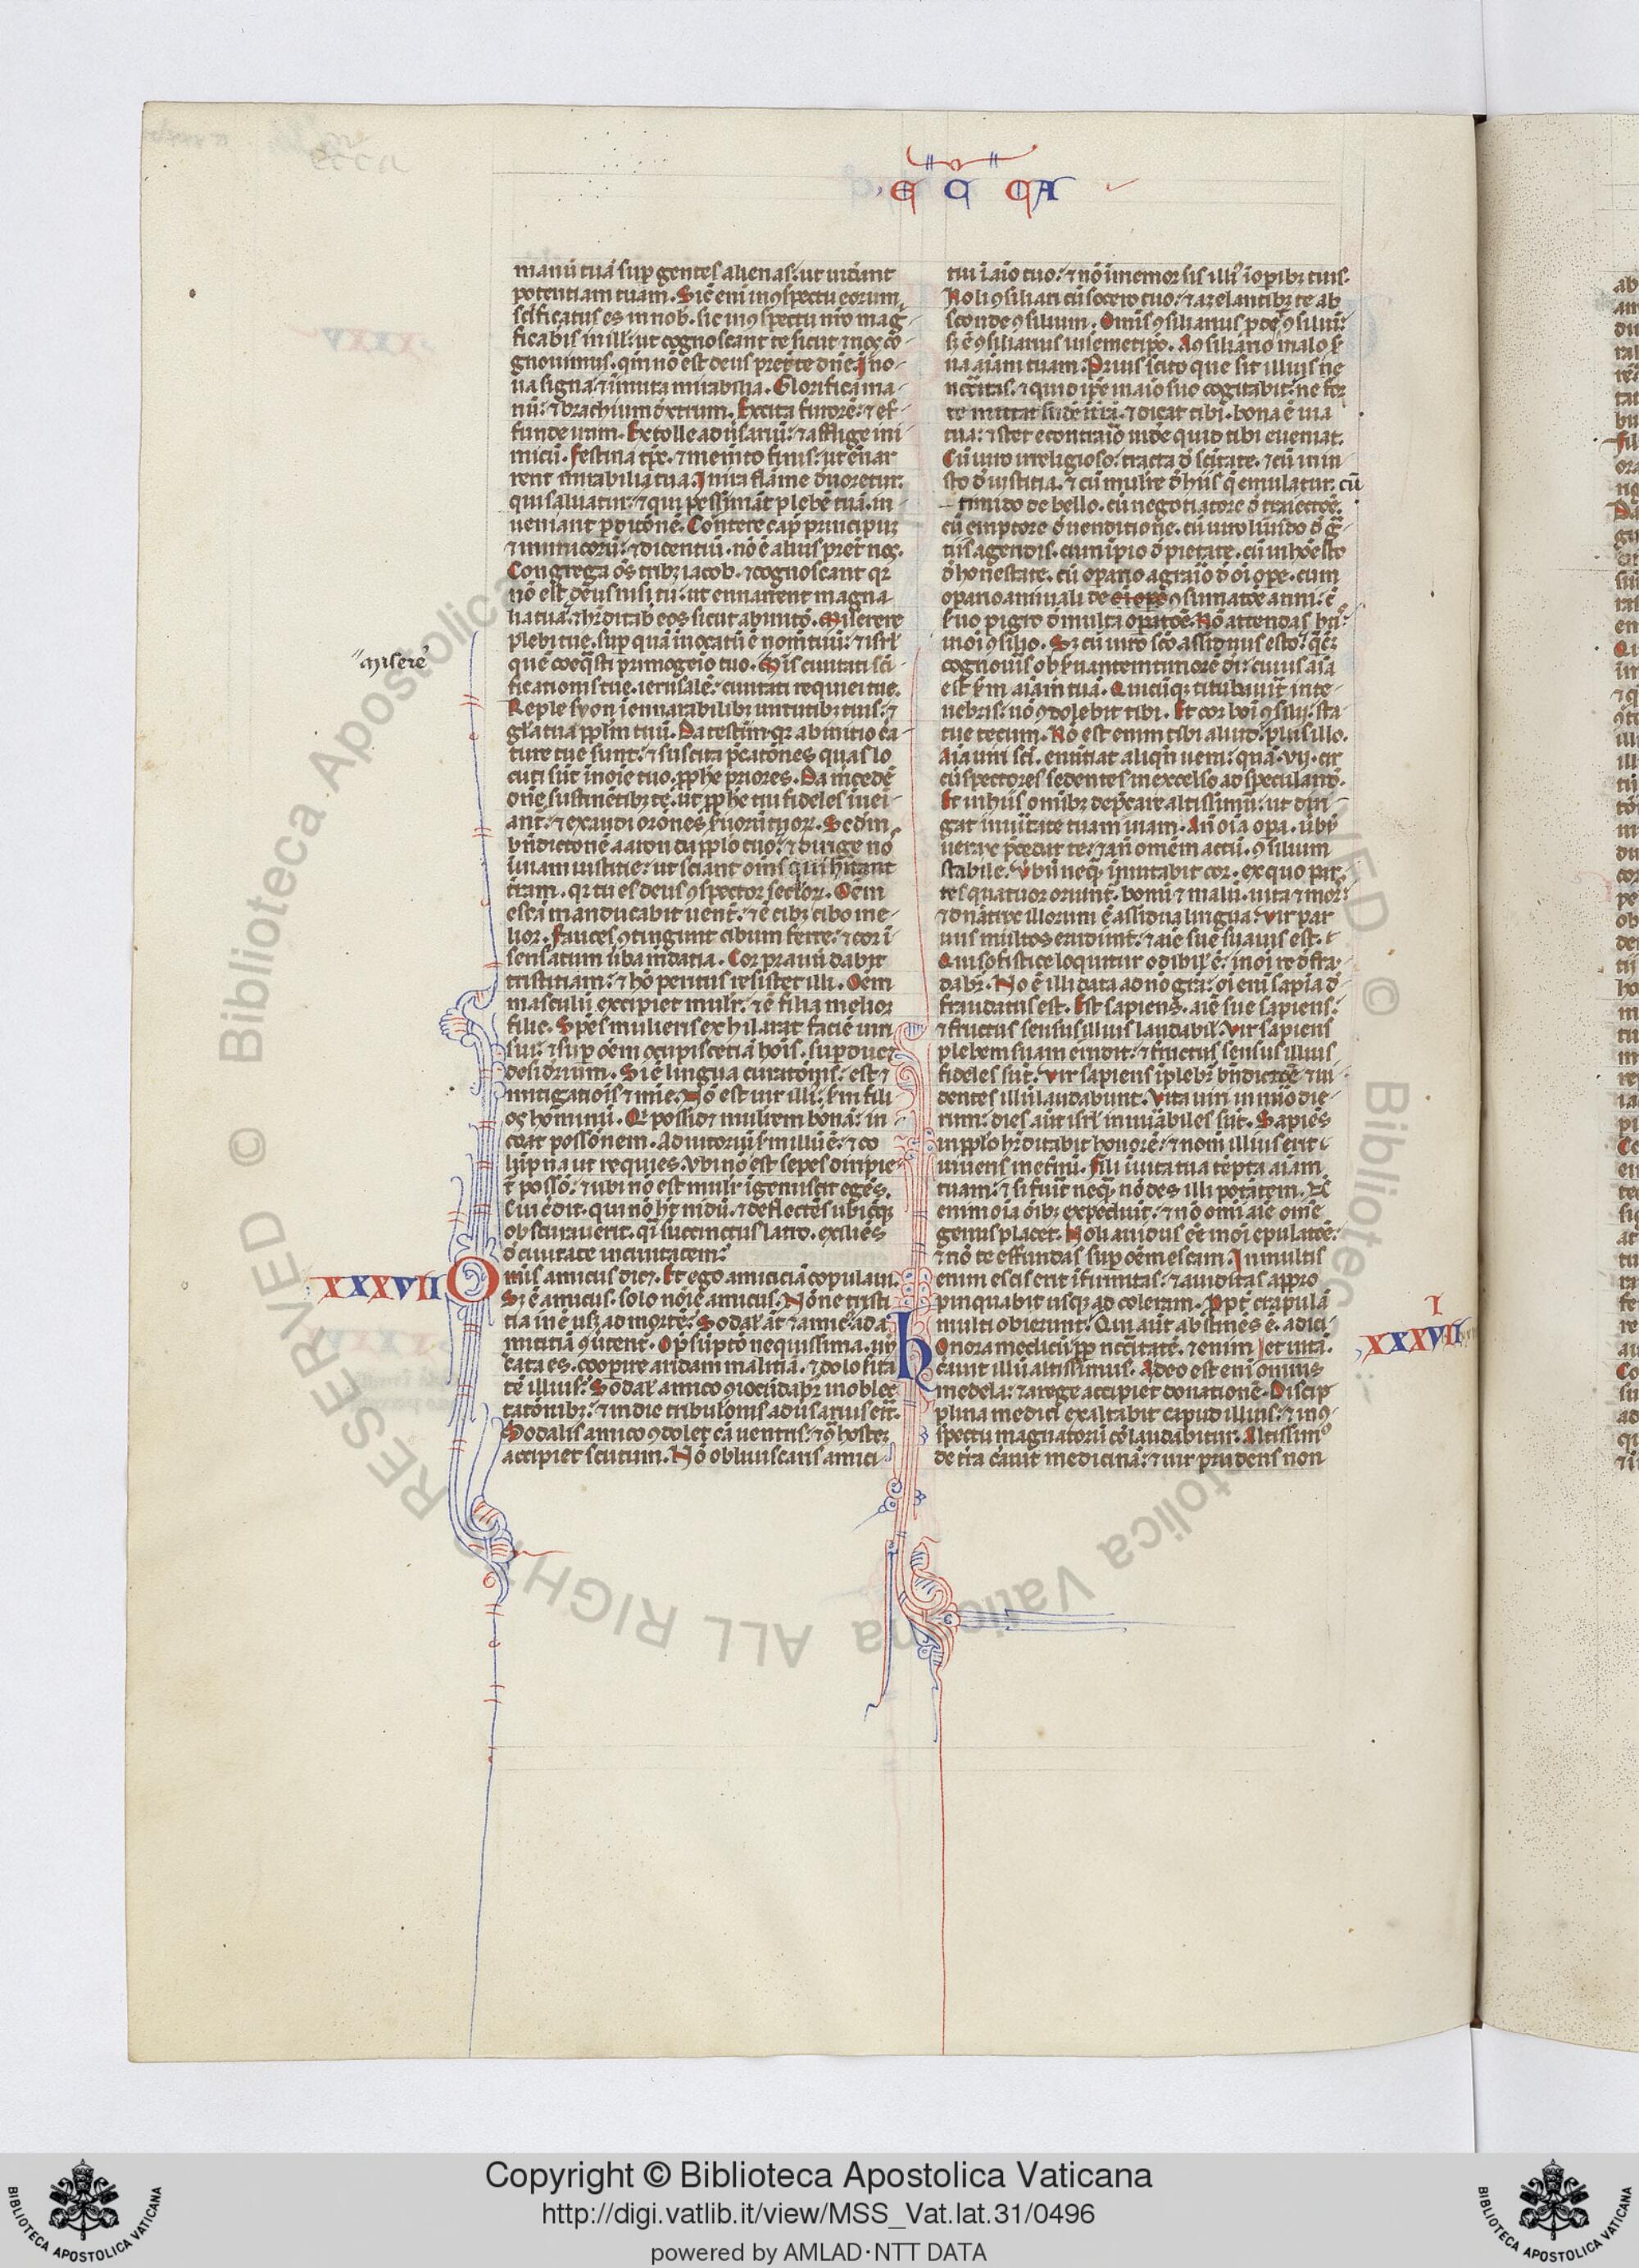 E C CA
manū tuā sup gentes alienas. ut uidant
potentiam tuam. Sic eni in ɔspectu eorum
ficabis in ill. ut cognoscant te sicut & nos co
gnouimus. qm nō est deus preter te dne. Ino
ua signa & inmuta mirabilia. Glorifica ma
nū. & brachium dextrum. Excita furorē. & ef
funde iram. Extolle aduersariū. & afflige ini
micū. Festina tps. & memento finis. ut enar
rent mirabilia tua. In ira flāme deuoretur.
qui saluatur. & qui pessimāt plebē tuā. in
ueniant pditōnē. Contere cap principum
& inimicorū. & dicentiū. nō ē alius preter nos.
Congrega oēs tribꝫ iacob. & cognoscant qr
nō est deus nisi tu. ut ennarrent magna
lia tua. & hrditab eos sicut ab initio. Miserere
plebi tue. sup quā inuocatū ē nom tuū. & isrl
quē coeqasti primogeito tuo. Mis ciuitati sci
ficationis tue. ierusalē. ciuitati requiei tue.
Reple syon ienarrabilibꝫ uirtutibꝫ tuis. &
gla tua pplm tuū. Da testim qr ab initio ca
ture tue sunt. & suscita pcatōnes quas lo
cuti sūt in oie tuo. pphe priores. Da mcedē
dne sustinētibꝫ te. ut pphe tui fideles inuei
ant. & exaudi orōnes suorū tuorꝫ. Scdm
bndictōnē aaron da pplo tuo. & dirige nos
in uiam iustitie. ut sciant oms qui hitant
tram. qr tu es deus ɔspector sclorꝫ. Oēm
escā manducabit uent. & ē cibꝫ cibo me
lior. Fauces ɔtingunt cibum ferre. & cor i
sensatum uba mdatia. Cor prauū dabit
tristitiam. & hō peritus resistet illi. Oēm
masculū excipiet mulr. & ē filia melior
filie. Spes mulieris exhilarat faciē uiri
sui. & sup oēm ɔcupiscetiā hōis. supducet
desiderium. Si ē lingua curatōnis. est &
mitigatiōis & mie. Nō est uir illi. sm fili
os hominū. Q possidet mulierem bonā. in
coat possōnem. Adiutoriū sm illū ē. & co
lūpna ut requies. Vbi nō est sepes diripie
t posso. & ubi nō est mulr igemiscit egēs.
Cui cdit. qui nō ht nidū. & deflectēs ubicqꝫ
obscurauerit. qi succinctus latro. exiliēs
d ciuitate in ciuitatem.
XXXVII
Omis amicus dicet. Et ego amiciciā copulaui.
Sꝫ ē amicus. solo noie amicus. Nōne tristi
tia inē usqꝫ ad mortē. Sodal āt & amic ad a
micitiā ɔuertent. O psūpto nequissima. un
cata es. coopire aridam malitiā. & dolositā
tē illius. Sodal amico ɔiocūdabr in oblec
tatōnibꝫ. & in die tribulōnis aduersarius erit.
Sodalis amico ɔdolet cā uentris. & ɔ hostem
accipiet scutum. Nō obliuiscaris amici
misere
tui i aīo tuo. & nō inmemor sis illi i opibꝫ tuis.
Noli ɔsiliari cū socero tuo. & a zelantibꝫ te ab
sconde ɔsilium. Omis ɔsiliarius pdē ɔsiliū.
sꝫ ē ɔsiliarius in semetipo. A ɔsiliario malo s
ua aīam tuam. Prius scito que sit illius ne
cessitas. & quid ipe in aīo suo cogitabit. ne for
te mittat sudē i trā. & dicat tibi. bona ē uia
tua. & stet e contraio uide quid tibi eueniat.
Cū uiro irreligioso. tracta d scitate. & cū iniu
sto d iustitia. & cū muliere d hiis q emulatur. cū
timido de bello. cū negotiatore d traiectōē.
cū emptore d uenditione. cū uiro liuido d gra
tiis agendis. cum ipio d pietate. cū inhoesto
d honestate. cū opario agraio d oi ope. cum
opario annuali de ɔsumatōē anni. c
suo pigro d multa opatōē. Nō attendas his
in oi ɔsilio. Sꝫ cū uiro sco assiduus esto. qēꝫ
cognouis obseruantem timorē di. cuius aīa
est sm aīam tuā. Quicūqꝫ titubauit in te
nebris. nō ɔdolebit tibi. Et cor boi ɔsilij. sta
tue tecum. Nō est enim tibi aliud pluris illo.
Aīa uiri sci. enūtiat aliqn uera. quā. vij. cir
cūspectores sedentes in excelso ad speculand.
Et in hiis omibꝫ depcare altissimū. ut diri
gat in ueritate tuam uiam. An oīa opa. ubū
uerax pcedat te. & an omēm actū. ɔsilium
stabile. Vbū neqꝫ inmutabit cor. ex quo par
tes quatuor oriunt. bonū & malū. uita & mors
& dnatrix illorum ē assidua lingua. Vir peri
tus multos erudiuit. & aīe sue suauis est.
Qui sofistice loquitur odibil ē. in oi re dfrau
dabr. Nō ē illi data a dno gra. oi eni sapia d
fraudatus est. Est sapiens. aīe sue sapiens.
& fructus sensus illius laudabil. Vir sapiens
plebem suam erudit. & fructus sensus illius
fideles sūt. Vir sapiens iplebit bndictōē & ui
dentes illū laudabunt. Vita uiri in nūo die
rum. dies aūt isrl innuābiles sūt. Sapiēs
in pplo hrditabit honorē. & nom illius erit
uiuens in etnū. Fili in uita tua tepta aīam
tuam. & si fuit neqꝫ. nō des illi potātem. Nō
enim oīa oibꝫ expediūt. & nō omi aīe omē
genus placet. Noli auidus eē in oi epulatōē.
& nō te effundas sup oēm escam. In multis
enim escis erit ifirmitas. & auiditas appro
pinquabit usqꝫ ad coleram. Ppt crapulā
multi obierunt. Qui aūt abstinēs ē. adici
et uitā.
XXXVIII
Honora medicū pp necitatē. & enim
creauit illū altissimus. A deo est eni omnis
medela. & a rege accipiet donationē. Discip
plina medici exaltabit capud illius. & in ɔ
spectu magnatorū collaudabitur. Altissimꝰ
de tra creauit medicinā. & uir prudens non
Copyright © Biblioteca Apostolica Vaticana
http://digi.vatlib.it/view/MSS_Vat.lat.31/0496
powered by AMLAD·NTT DATA
BIBLIOTECA APOSTOLICA VATICANA
BIBLIOTECA APOSTOLICA VATICANA